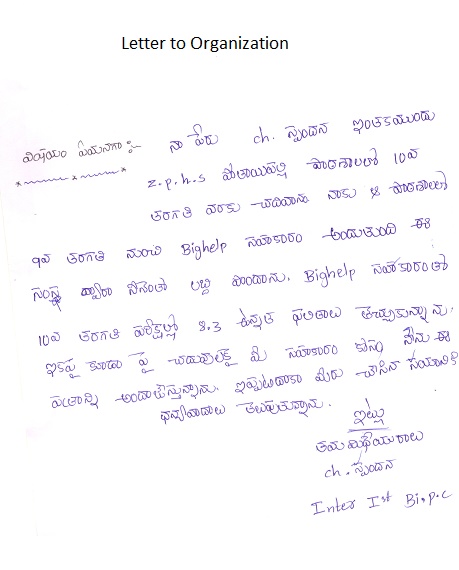 Letter to Organization
విషయం ఏమనగా :-
నా పేరు ch. స్పందన ఇంతకముందు
z.p.h.s పోతాయిపల్లి పాఠశాలలో 10వ
తరగతి వరకు చదివాను నాకు ఆ పాఠశాలలో
9వ తరగతి నుంచి Bighelp సహకారం అందుతుంది ఈ
సంస్థ ద్వారా నేనెంతో లబ్ధి పొందాను. Bighelp సహకారంతో
10వ తరగతి పరీక్షల్లో 8.3 ఉన్నత ఫలితాలు తెచ్చుకున్నాను.
ఇకపై కూడా పై చదువులకై మీ సహకారం కోసం నేను ఈ
పత్రాన్ని అందజేస్తున్నాను. ఇప్పటిదాకా మీరు చేసిన సహాయానికి
ధన్యవాదాలు తెలుపుతున్నాను.
ఇట్లు
తమ విధేయురాలు
ch. స్పందన
Inter Ist Bi.p.c